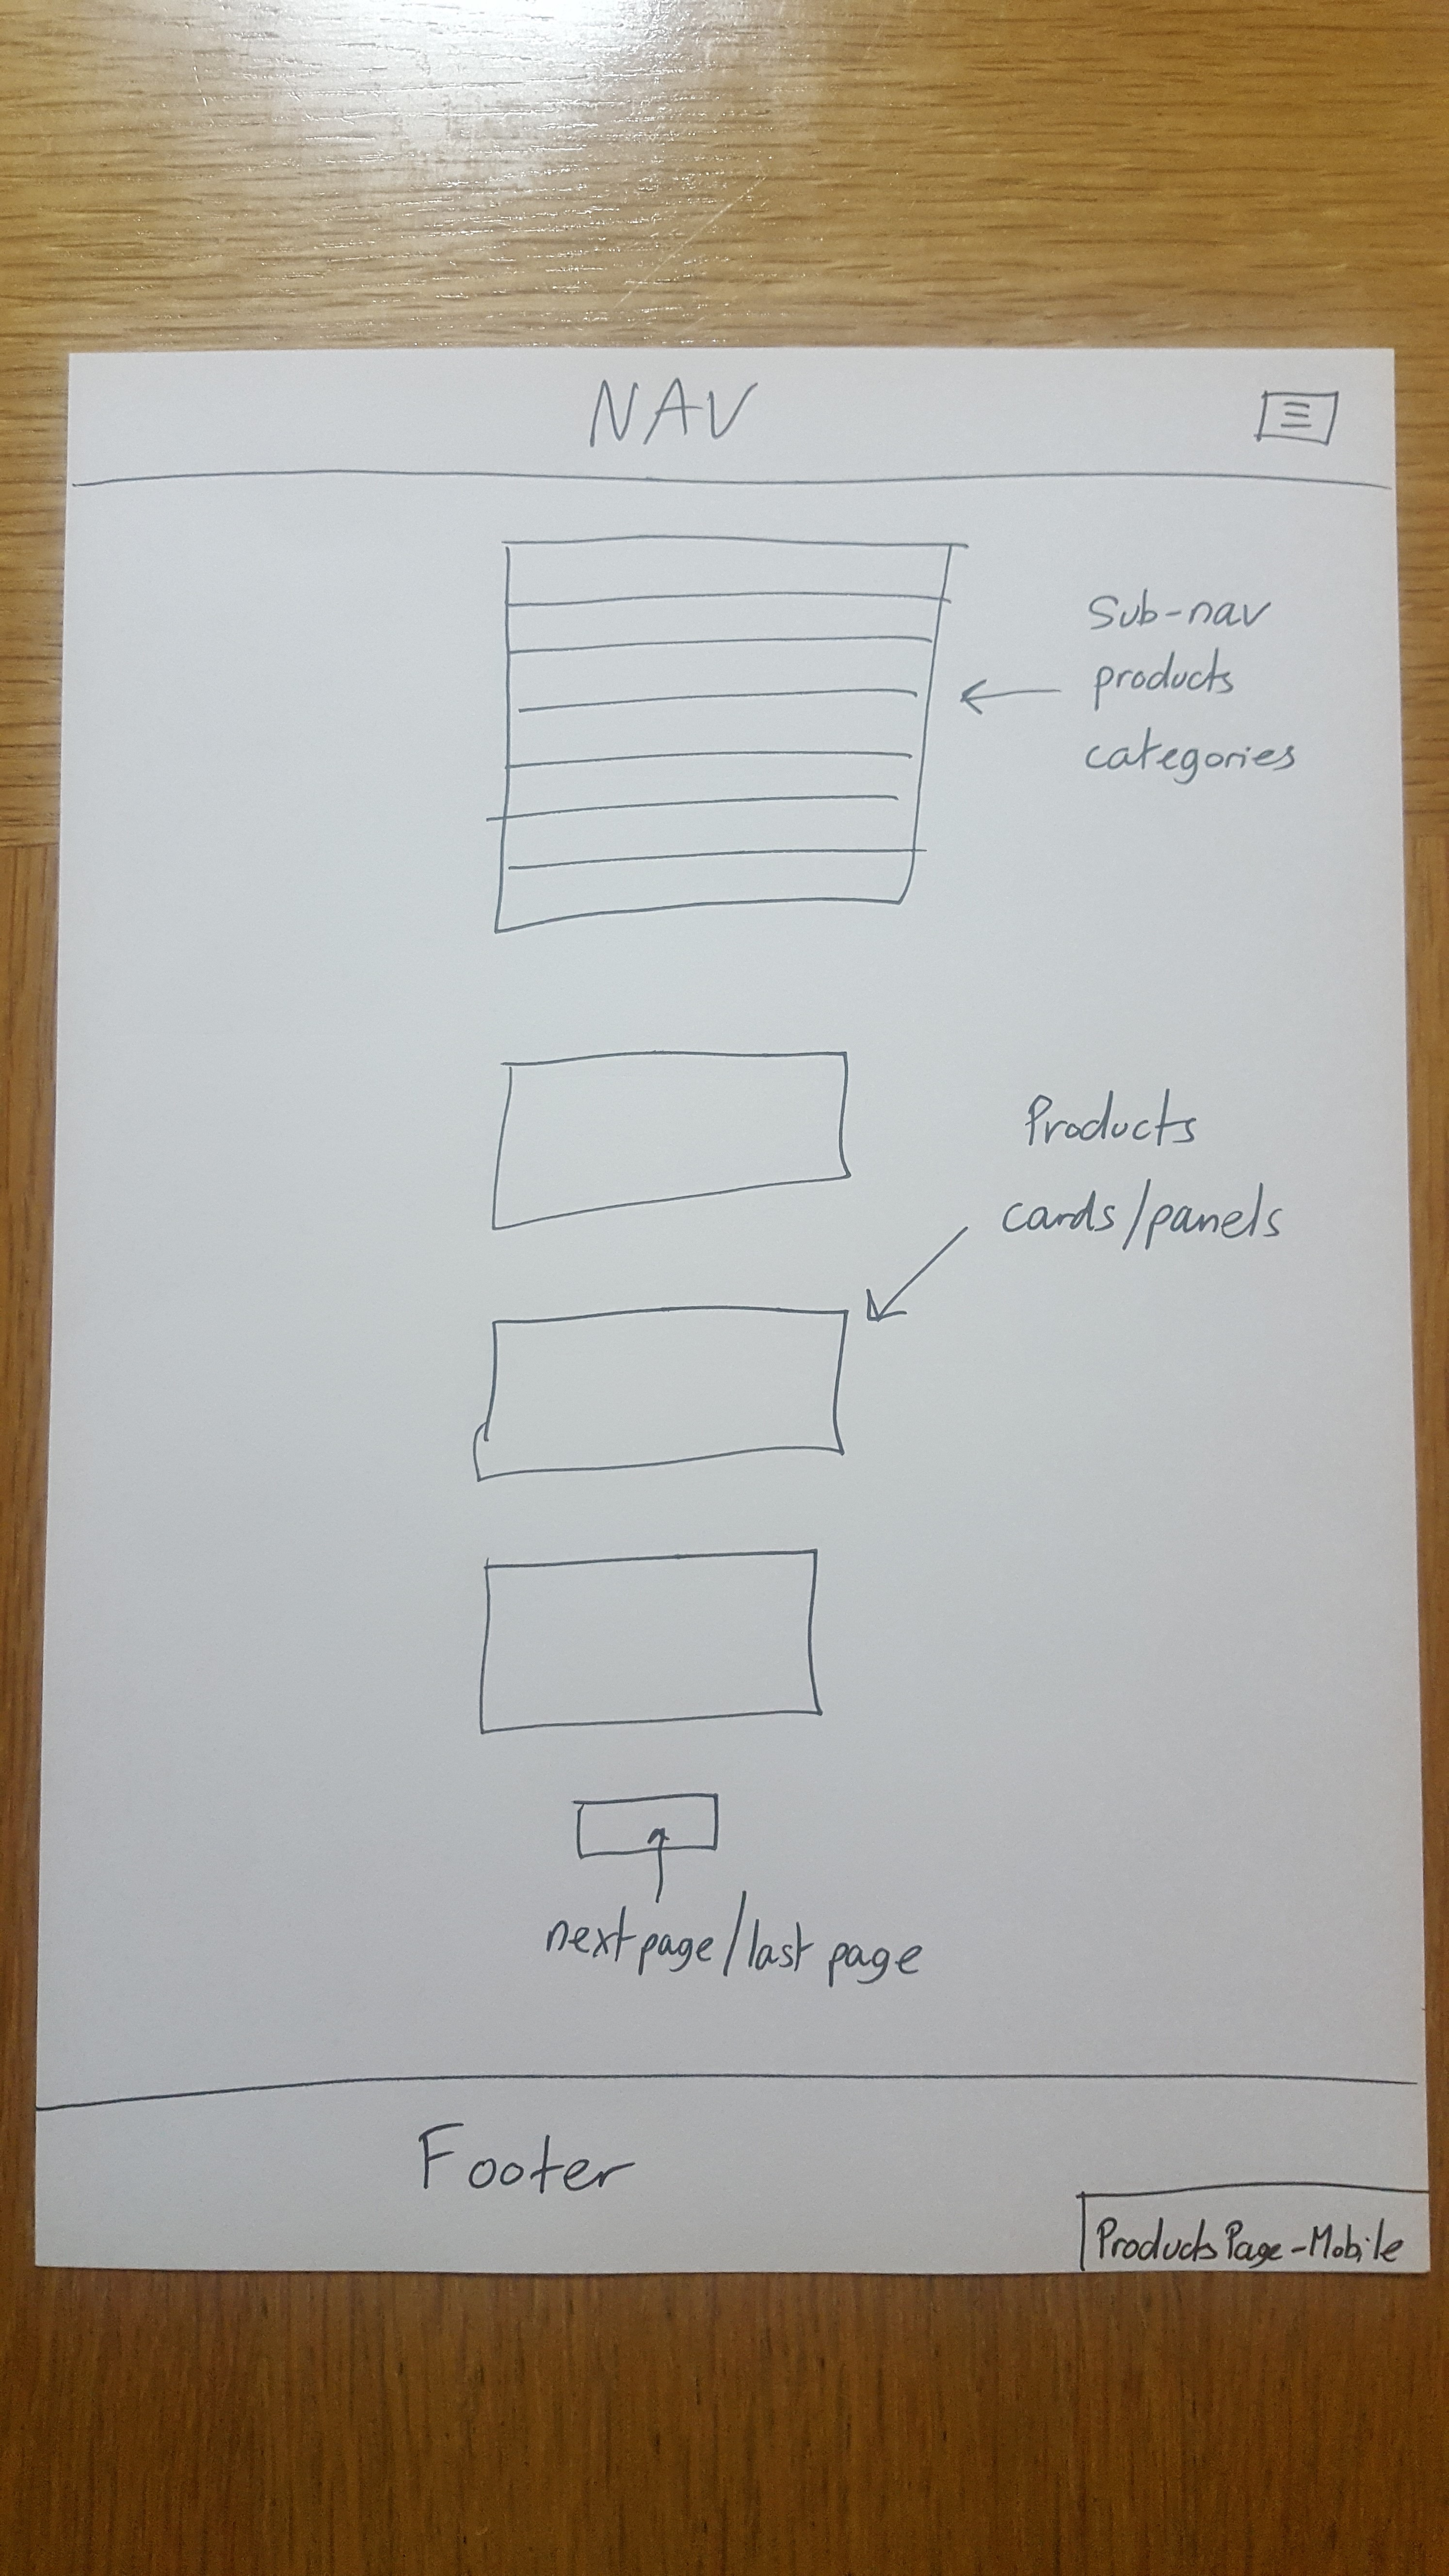 NAV
Sub-nav
products
categories
Products
cards/panels
next page/last page
Footer
Products Page-Mobile